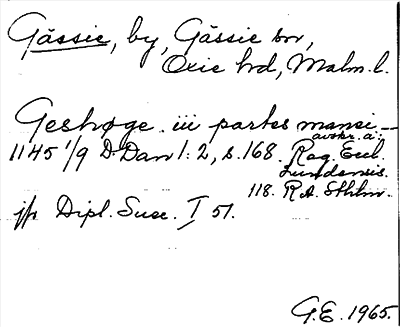 Gässie, by, Gässie sn,
Oxie hd, Malm. l.
Geshøge. iii partes mansi —
avskr. a:
1145 1/9 D. Dan 1:2, s. 168. Reg. Eccl.
Lundensis.
118. R.A. Sthlm.
jfr Dipl. Suec. I 51.
G.E. 1965.